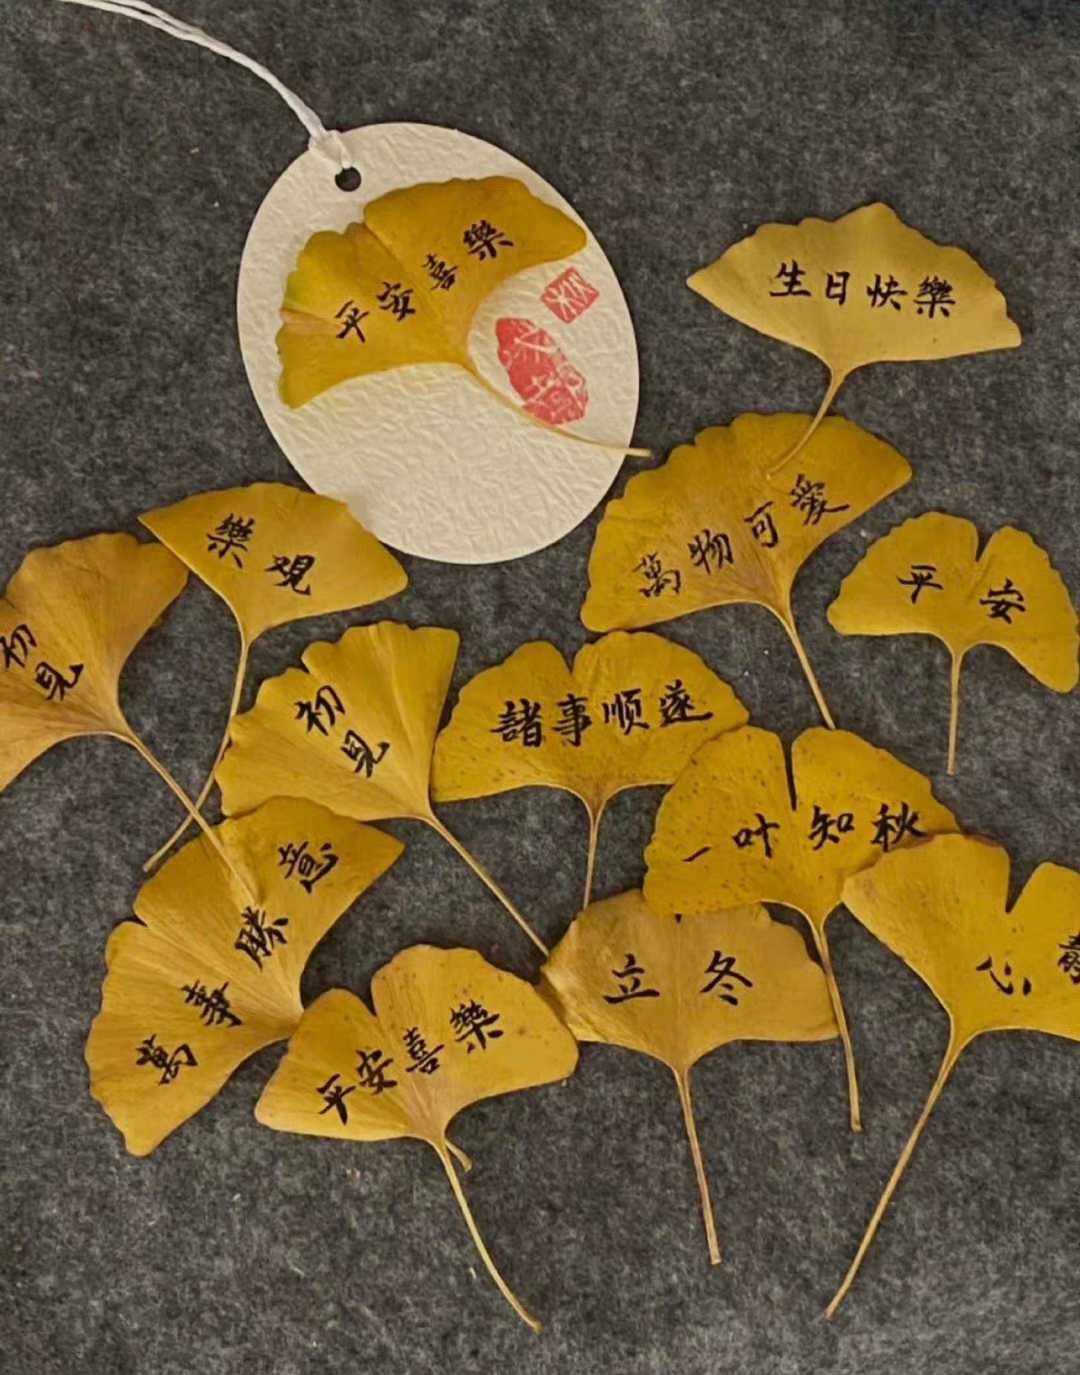 平安喜樂
生日快樂
萬物可愛
樂觀
平安
初見
初見
諸事顺遂
一叶知秋
萬事勝意
立冬
心
平安喜樂